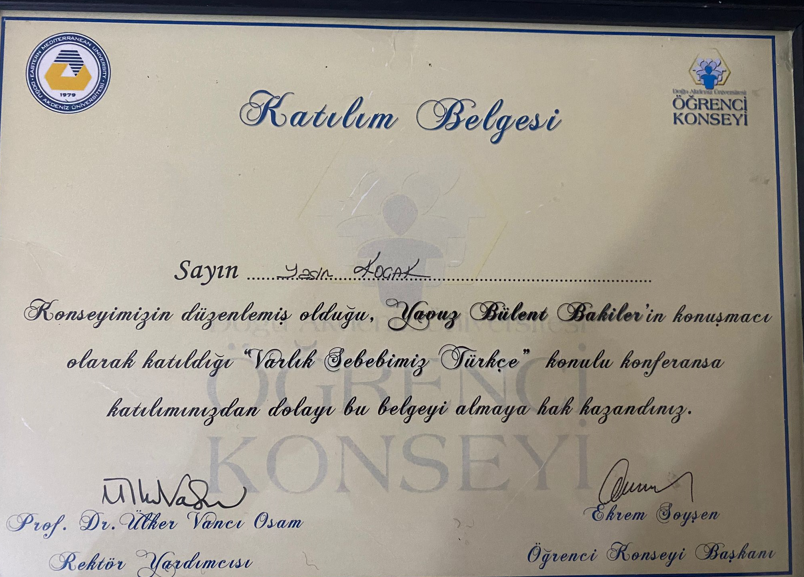 EASTERN MEDITERRANEAN UNIVERSITY
DOĞU AKDENİZ ÜNİVERSİTESİ
1979
Doğu Akdeniz Üniversitesi
ÖĞRENCİ
KONSEYİ
Katılım Belgesi
Sayın ..... Yasin KOÇAK .....
Konseyimizin düzenlemiş olduğu, Yavuz Bülent Bakiler'in konuşmacı
olarak katıldığı “Varlık Sebebimiz Türkçe” konulu konferansa
katılımınızdan dolayı bu belgeyi almaya hak kazandınız.
Doğu Akdeniz Üniversitesi
ÖĞRENCİ
KONSEYİ
Prof. Dr. Ülker Vancı Osam
Rektör Yardımcısı
Ekrem Soyşen
Öğrenci Konseyi Başkanı